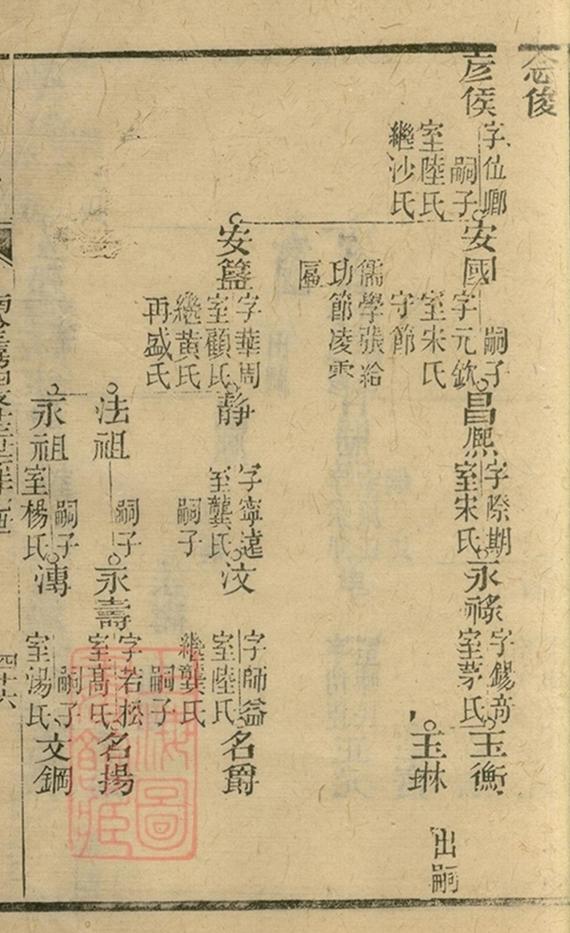 念俊
彦侯
字位卿
嗣子
室陸氏
繼沙氏
安國
字元欽
嗣子
室宋氏
守節
儒學張給
功節凌雲
匾
昌熈
字際期
室宋氏
永祿
字錫奇
室茅氏
玉衡
玉琳
出嗣
安簋
字華周
室顧氏
繼黄氏
再盛氏
靜
字寧遠
室龔氏
嗣子
汶
字師益
室陸氏
繼龔氏
嗣子
名爵
法祖
嗣子
永壽
字若松
室髙氏
名揚
永祖
嗣子
室楊氏
漙
嗣子
室湯氏
文鋼
四十六